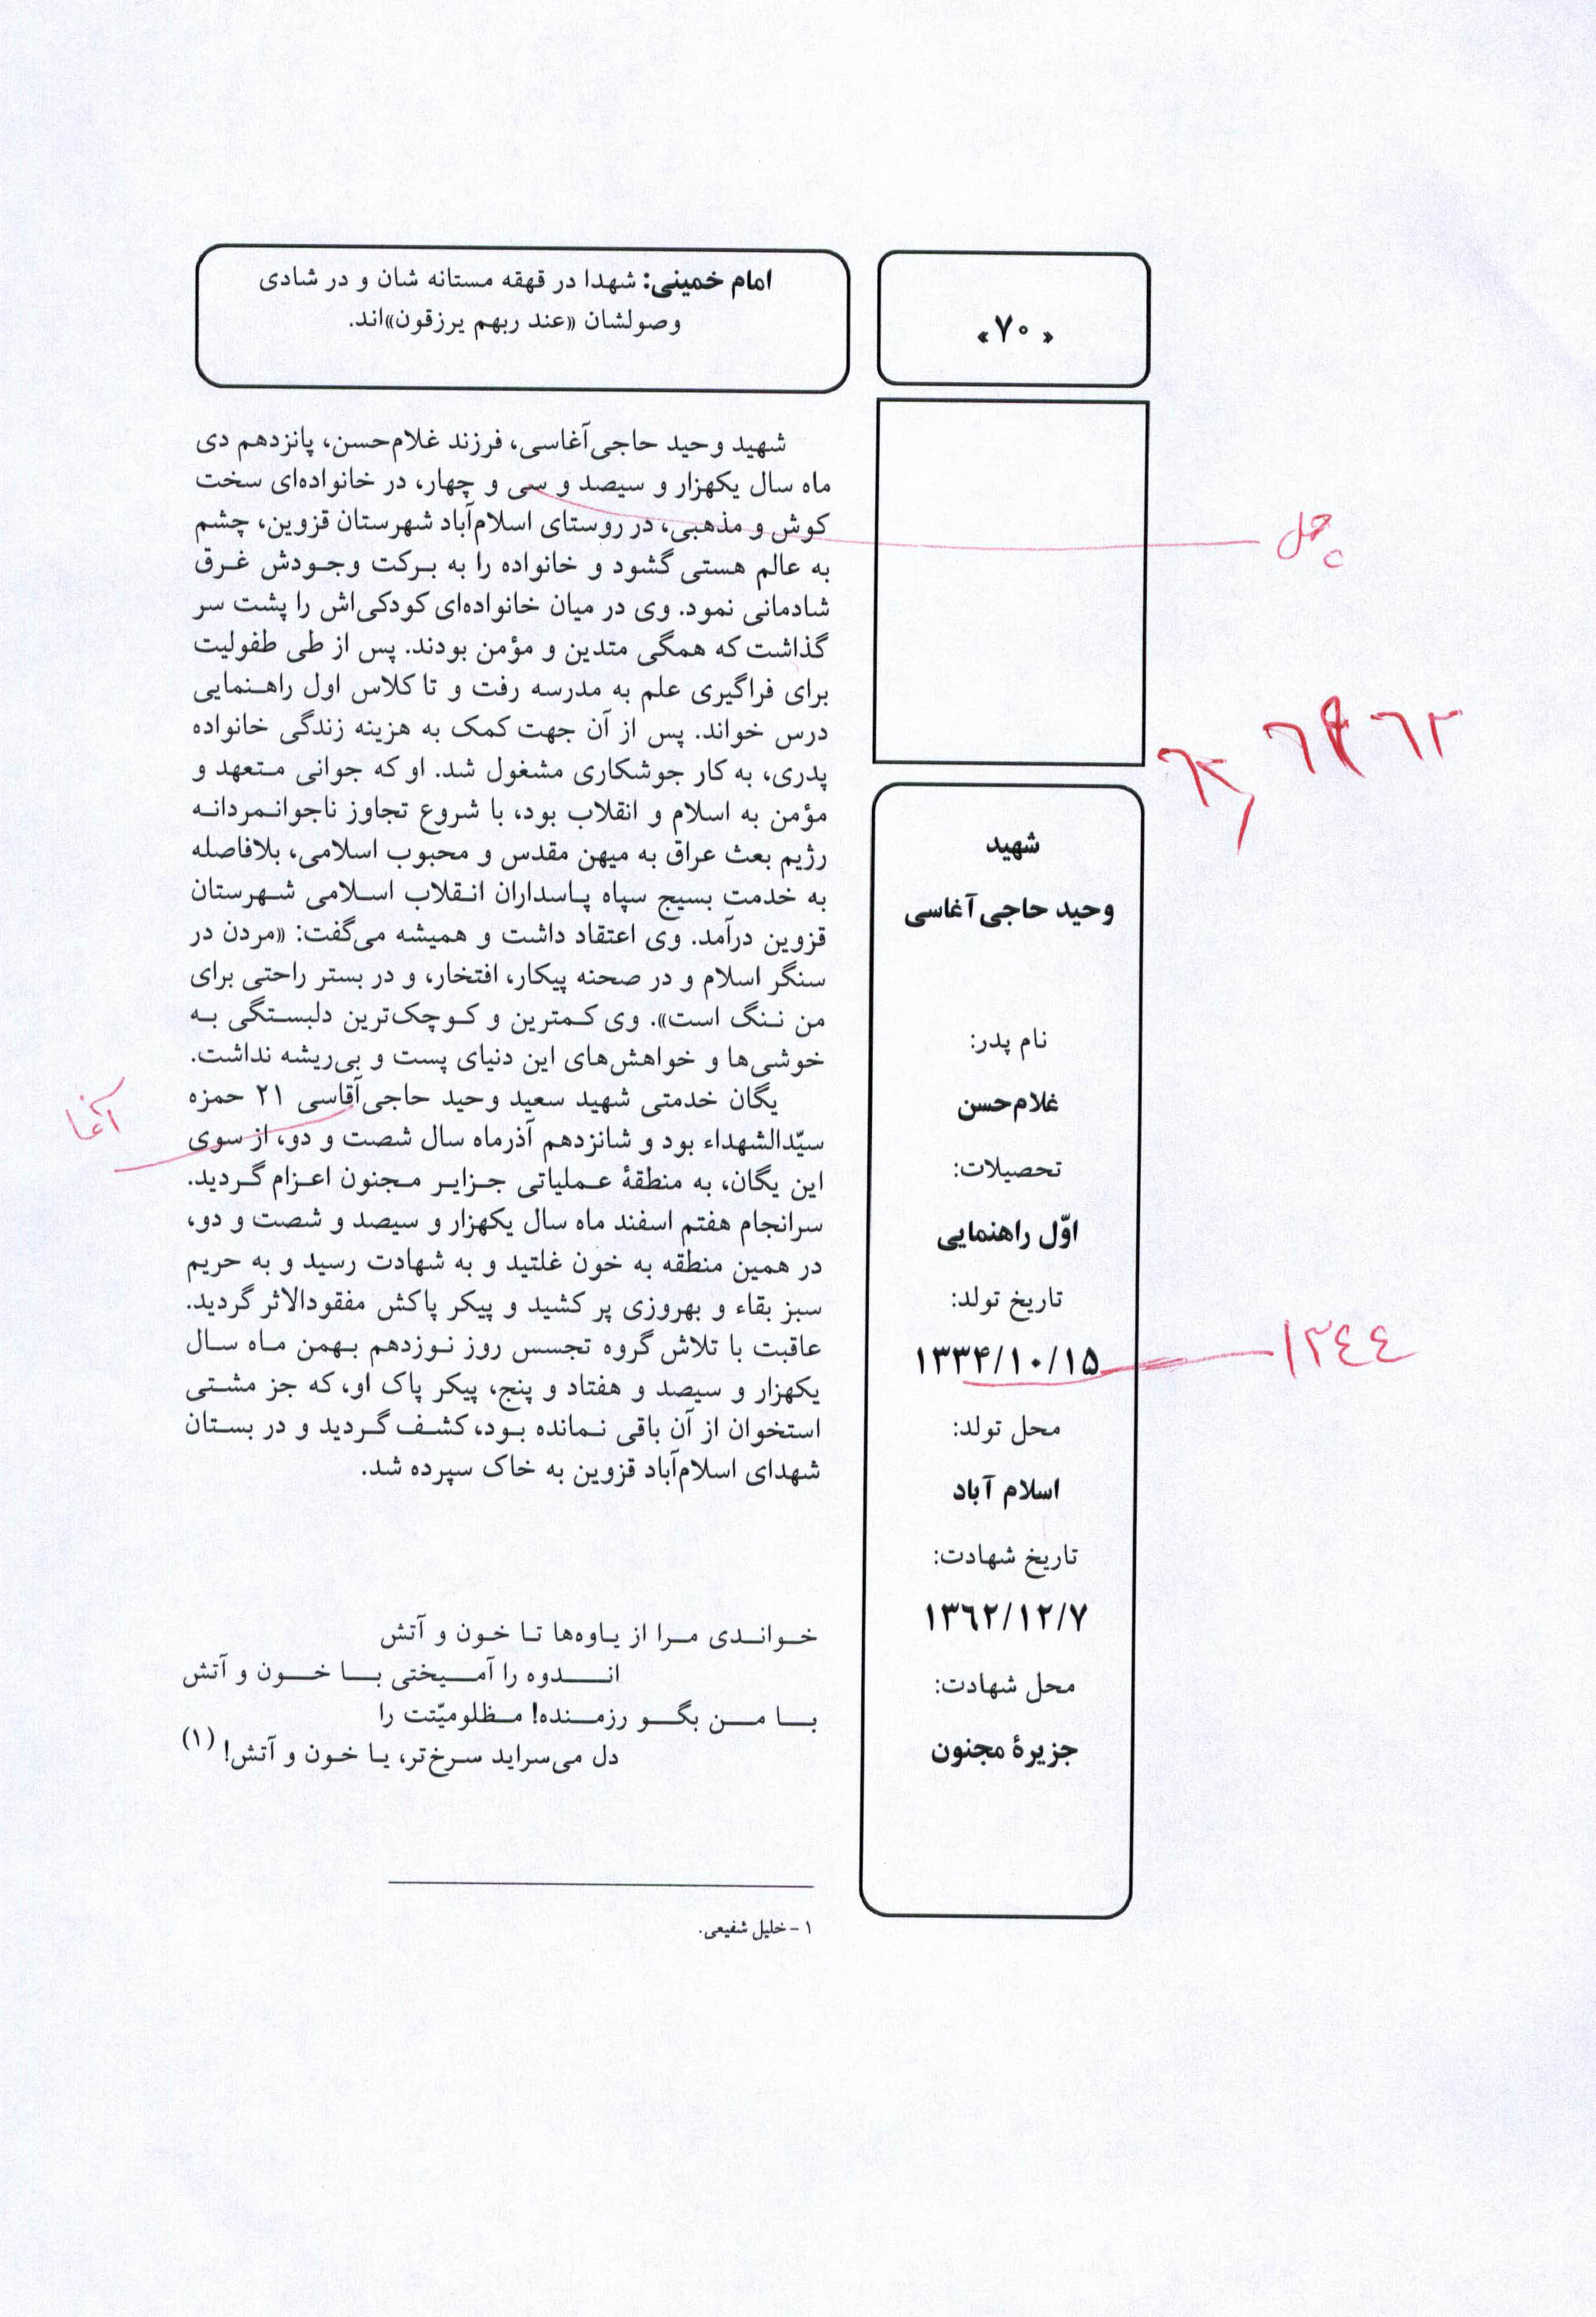 «۷۰»
امام خمینی: شهدا در قهقه مستانه شان و در شادی
وصولشان «عند ربهم یرزقون»اند.
شهید وحید حاجی‌آغاسی، فرزند غلام‌حسن، پانزدهم دی
ماه سال یکهزار و سیصد و سی و چهار، در خانواده‌ای سخت
کوش و مذهبی، در روستای اسلام‌آباد شهرستان قزوین، چشم
به عالم هستی گشود و خانواده را به برکت وجودش غرق
شادمانی نمود. وی در میان خانواده‌ای کودکی‌اش را پشت سر
گذاشت که همگی متدین و مؤمن بودند. پس از طی طفولیت
برای فراگیری علم به مدرسه رفت و تا کلاس اول راهنمایی
درس خواند. پس از آن جهت کمک به هزینه زندگی خانواده
پدری، به کار جوشکاری مشغول شد. او که جوانی متعهد و
مؤمن به اسلام و انقلاب بود، با شروع تجاوز ناجوانمردانه
رژیم بعث عراق به میهن مقدس و محبوب اسلامی، بلافاصله
به خدمت بسیج سپاه پاسداران انقلاب اسلامی شهرستان
قزوین درآمد. وی اعتقاد داشت و همیشه می‌گفت: «مردن در
سنگر اسلام و در صحنه پیکار، افتخار، و در بستر راحتی برای
من ننگ است». وی کمترین و کوچک‌ترین دلبستگی به
خوشی‌ها و خواهش‌های این دنیای پست و بی‌ریشه نداشت.
یگان خدمتی شهید سعید وحید حاجی‌آقاسی ۲۱ حمزه
سیّدالشهداء بود و شانزدهم آذرماه سال شصت و دو، از سوی
این یگان، به منطقهٔ عملیاتی جزایر مجنون اعزام گردید.
سرانجام هفتم اسفند ماه سال یکهزار و سیصد و شصت و دو،
در همین منطقه به خون غلتید و به شهادت رسید و به حریم
سبز بقاء و بهروزی پر کشید و پیکر پاکش مفقودالاثر گردید.
عاقبت با تلاش گروه تجسس روز نوزدهم بهمن ماه سال
یکهزار و سیصد و هفتاد و پنج، پیکر پاک او، که جز مشتی
استخوان از آن باقی نمانده بود، کشف گردید و در بستان
شهدای اسلام‌آباد قزوین به خاک سپرده شد.
خواندی مرا از یاوه‌ها تا خون و آتش
اندوه را آمیختی با خون و آتش
با من بگو رزمنده! مظلومیّتت را
دل می‌سراید سرخ‌تر، یا خون و آتش! (۱)
۱ - خلیل شفیعی.
شهید
وحید حاجی‌آغاسی
نام پدر:
غلام‌حسن
تحصیلات:
اوّل راهنمایی
تاریخ تولد:
۱۳۳۴/۱۰/۱۵
محل تولد:
اسلام آباد
تاریخ شهادت:
۱۳۶۲/۱۲/۷
محل شهادت:
جزیرهٔ مجنون
چهل
۱۳٤٤
آغا